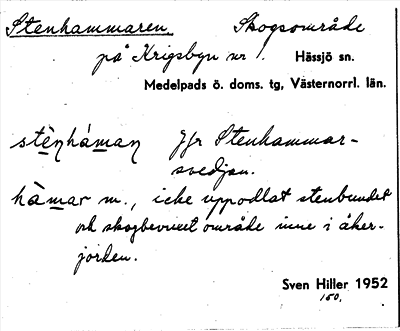 Stenhammaren. Skogsområde
på Krigsbyn nr 1. Hässjö sn.
Medelpads ö. doms. tg, Västernorrl. län.
stè̱nhá̱maṇ Jfr Stenhammar-
svedjan.
hà̱mar m., icke uppodlat stenbundet
och skogbevuxet område inne i åker-
jorden.
Sven Hiller 1952
150.